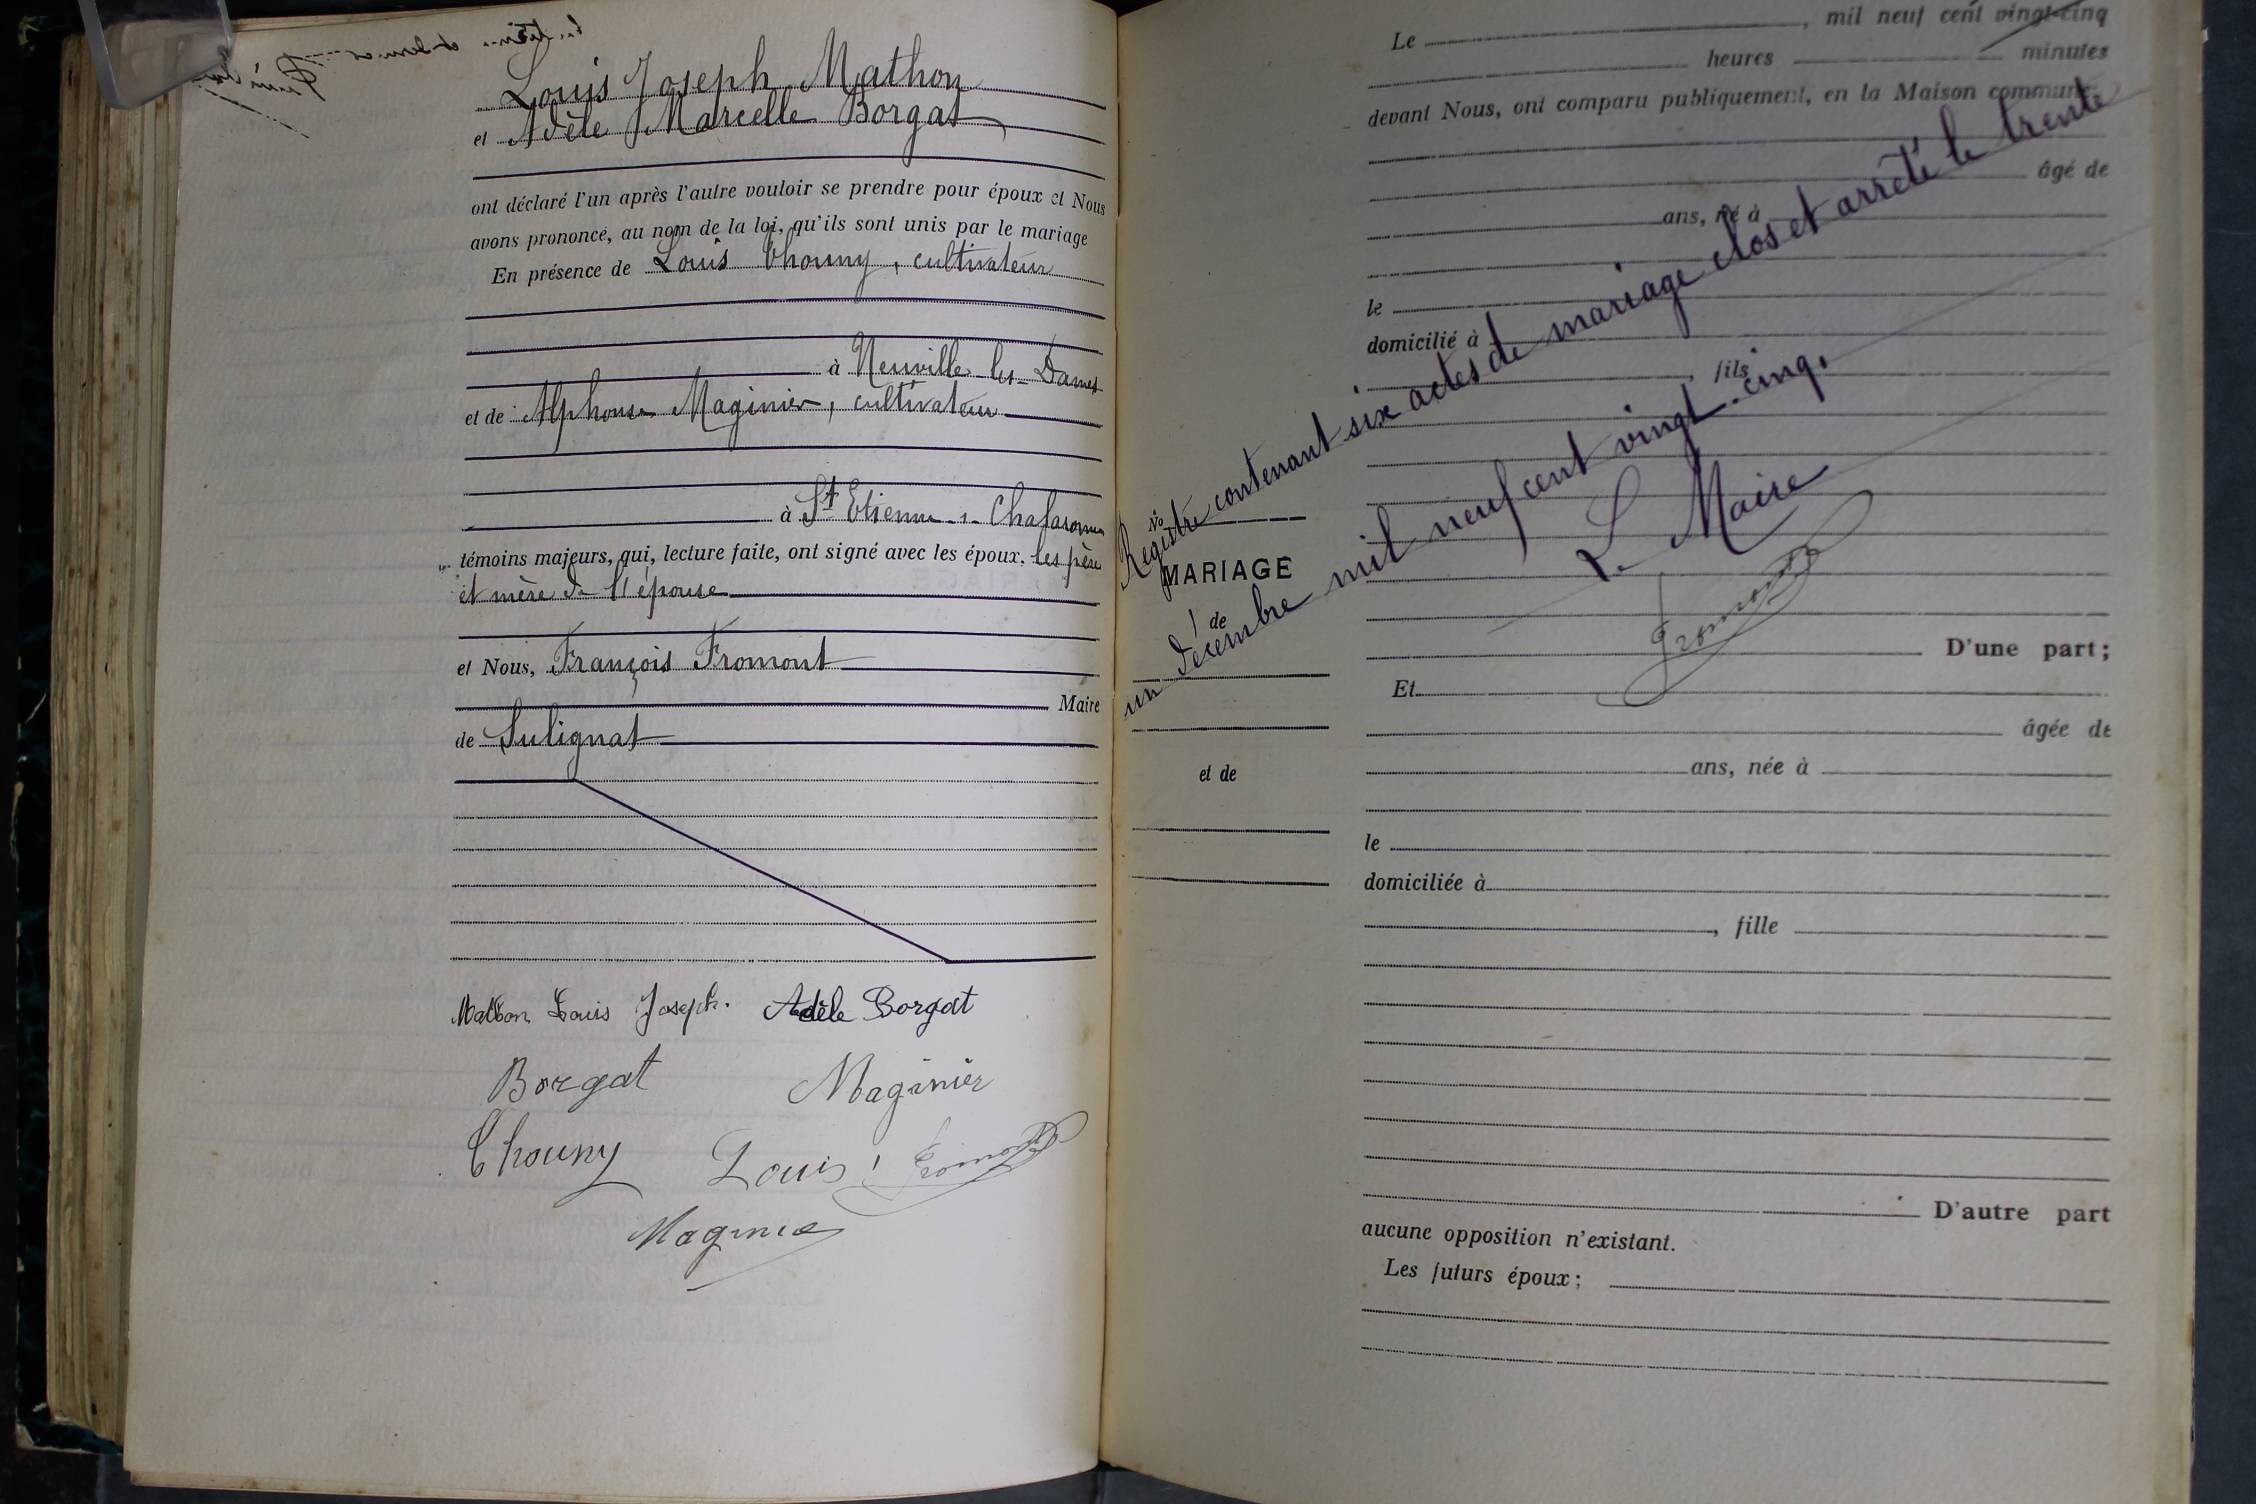 Louis Joseph Mathon
et Adèle Marcelle Borgat
ont déclaré l'un après l'autre vouloir se prendre pour époux et Nous
avons prononcé, au nom de la loi, qu'ils sont unis par le mariage
En présence de Louis Chouny, cultivateur
à Neuville-les-Dames
et de Alphonse Maginier, cultivateur
à St Etienne-s-Chalaronne
témoins majeurs, qui, lecture faite, ont signé avec les époux, les père
et mère de l'épouse
et Nous, François Fromont
Maire
de Sulignat
Mathon Louis Joseph. Adèle Borgat
Borgat Maginier
Chouny Louis Fromont
Maginier
Le , mil neuf cent vingt-cinq
heures minutes
devant Nous, ont comparu publiquement, en la Maison commune
âgé de
ans, né à
le
domicilié à
, fils
Registre contenant six actes de mariage clos et arrêté le trente
un décembre mil neuf cent vingt-cinq.
Le Maire
Fromont
No
MARIAGE
de
et de
D'une part;
Et
âgée de
ans, née à
le
domiciliée à
, fille
D'autre part
aucune opposition n'existant.
Les futurs époux;